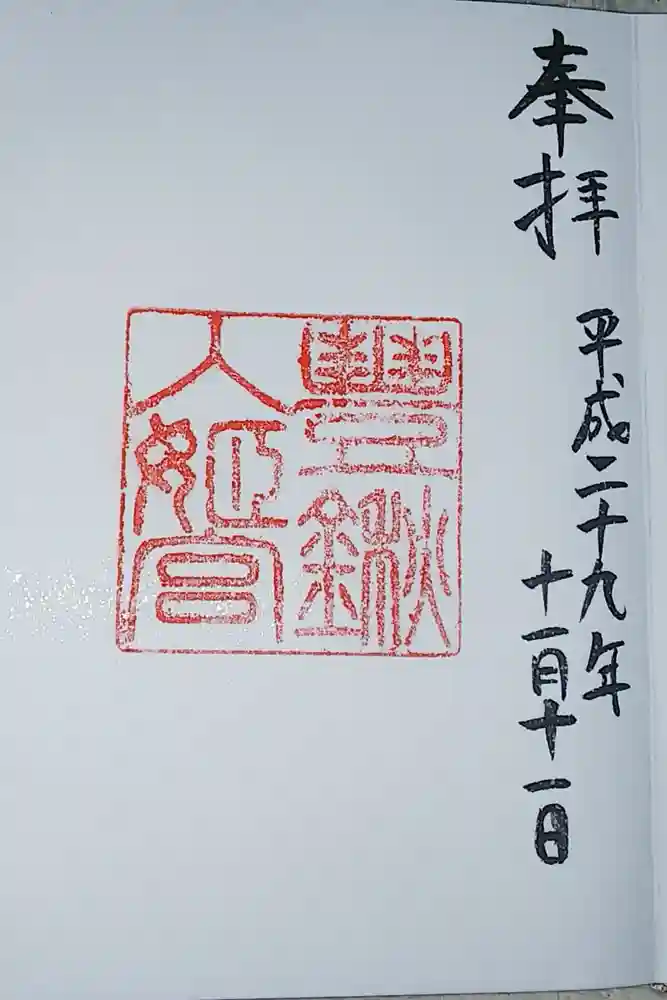 奉拝
平成二十九年
十一月十一日
豊鍬
入姫宮